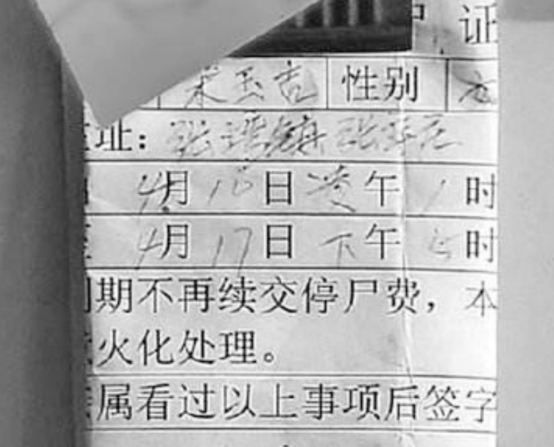 证
宋玉吉 性别
址：张泽镇张泽
4月16日凌午1时
4月17日下午5时
期不再续交停尸费，本
火化处理。
属看过以上事项后签字